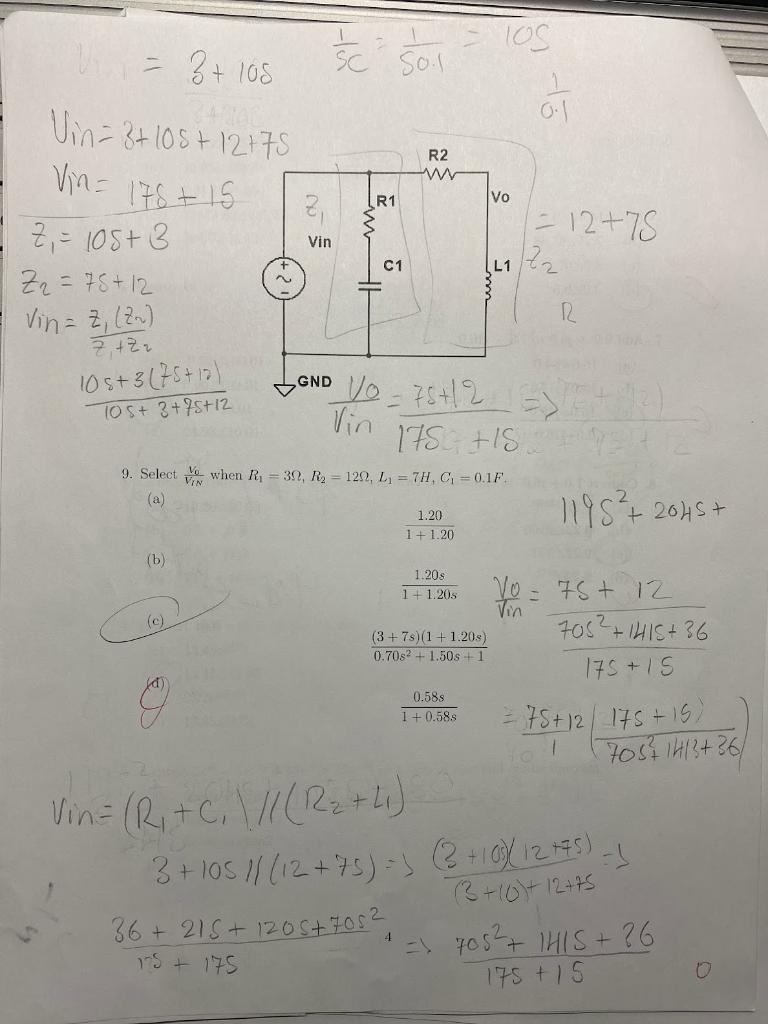 = 3 + 10S
1/SC = 1/S0.1 = 10S
1/0.1
Vin = 3+10S + 12+7S
Vin = 17S + 15
Z1 = 10S + 3
Z2 = 7S + 12
Vin = Z1(Z2) / Z1+Z2
10S+3(7S+12) / 10S+3+7S+12
R2
R1
Vo
Z1
Vin
C1
L1
Z2
= 12+7S
R
GND
Vo/Vin = 7S+12 / 17S+15 =>
9. Select Vo/VIN when R1 = 3Ω, R2 = 12Ω, L1 = 7H, C1 = 0.1F.
(a)
1.20 / 1 + 1.20
119S² + 204S +
(b)
1.20s / 1 + 1.20s
Vo/Vin = 7S + 12 / 70S²+141S+36 / 17S+15
(c)
(3 + 7s)(1 + 1.20s) / 0.70s² + 1.50s + 1
(d)
0.58s / 1 + 0.58s
= 7S+12 / 1 (17S+15 / 70S²+141S+36)
Vin = (R1+C1)//(R2+L1)
3+10S//(12+7S) => (3+10S)(12+7S) / (3+10)+12+7S =>
36 + 21S + 120S + 70S² / 15 + 17S
=> 70S² + 141S + 36 / 17S + 15
4
0